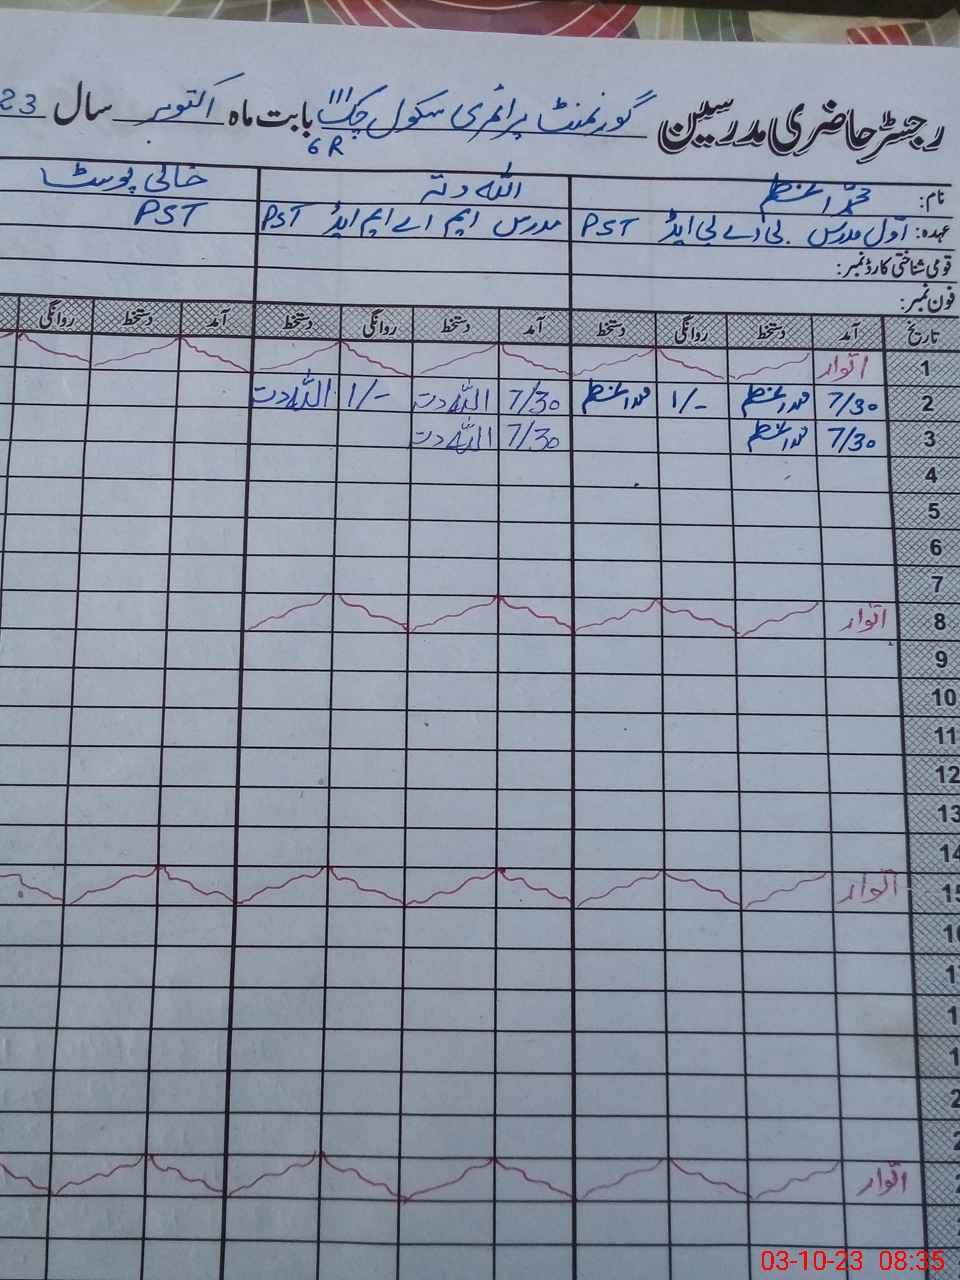 رجسٹر حاضری مدرسین گورنمنٹ پرائمری سکول چک 111 بابت ماہ اکتوبر سال 23
6R
نام: محمد اعظم اللہ دتہ خالی پوسٹ
عہدہ: اول مدرس بی اے بی ایڈ PST مدرس ایم اے ایم ایڈ PST PST
قومی شناختی کارڈ نمبر:
فون نمبر:
تاریخ آمد دستخط روانگی دستخط آمد دستخط روانگی دستخط آمد دستخط روانگی
1 اتوار
2 7/30 محمد اعظم 1/- محمد اعظم 7/30 اللہ دتہ 1/- اللہ دتہ
3 7/30 محمد اعظم 7/30 اللہ دتہ
4
5
6
7
8 اتوار
9
10
11
12
13
14
15 اتوار
اتوار
03-10-23 08:35